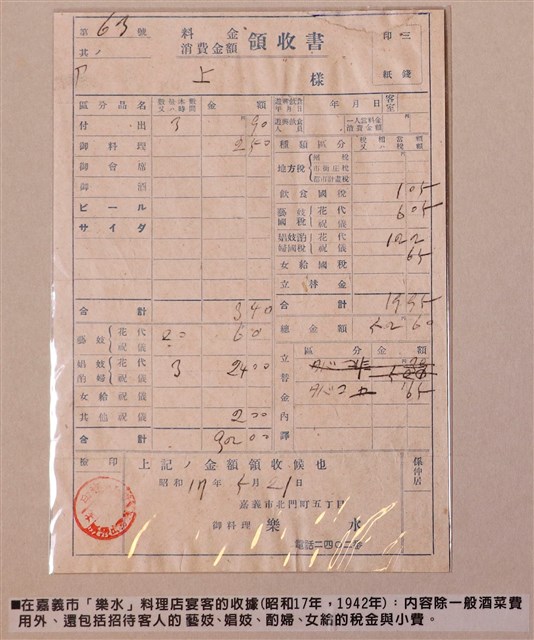 第 63 號
其ノ
料金
消費金額 領收書
印三
紙錢
上 樣
區分品名 數量又ハ本數時間 金額
付出 3 90
御料理 250
御會席
御酒
ビール
サイダ
合計 340
藝妓 花代 祝儀 20 60
娼妓酌婦 花代 祝儀 3 2400
女給祝儀
其他祝儀 200
合計
遊興飲食年月日 年月日 客室
遊興飲食人員 一人當料金消費金額
種類區分
地方稅
飲食國稅 105
藝妓國稅 花代 祝儀 605
娼妓酌婦國稅 花代 祝儀 122
65
女給國稅
立替金
合計
總金額
立替金內譯
區分 金額
タバコ 65
檢印
上記ノ金額領收候也
昭和17年5月21日
嘉義市北門町五丁目
御料理 樂水
電話二四〇二番
係仲居
■在嘉義市「樂水」料理店宴客的收據(昭和17年，1942年)：內容除一般酒菜費
用外、還包括招待客人的藝妓、娼妓、酌婦、女給的稅金與小費。